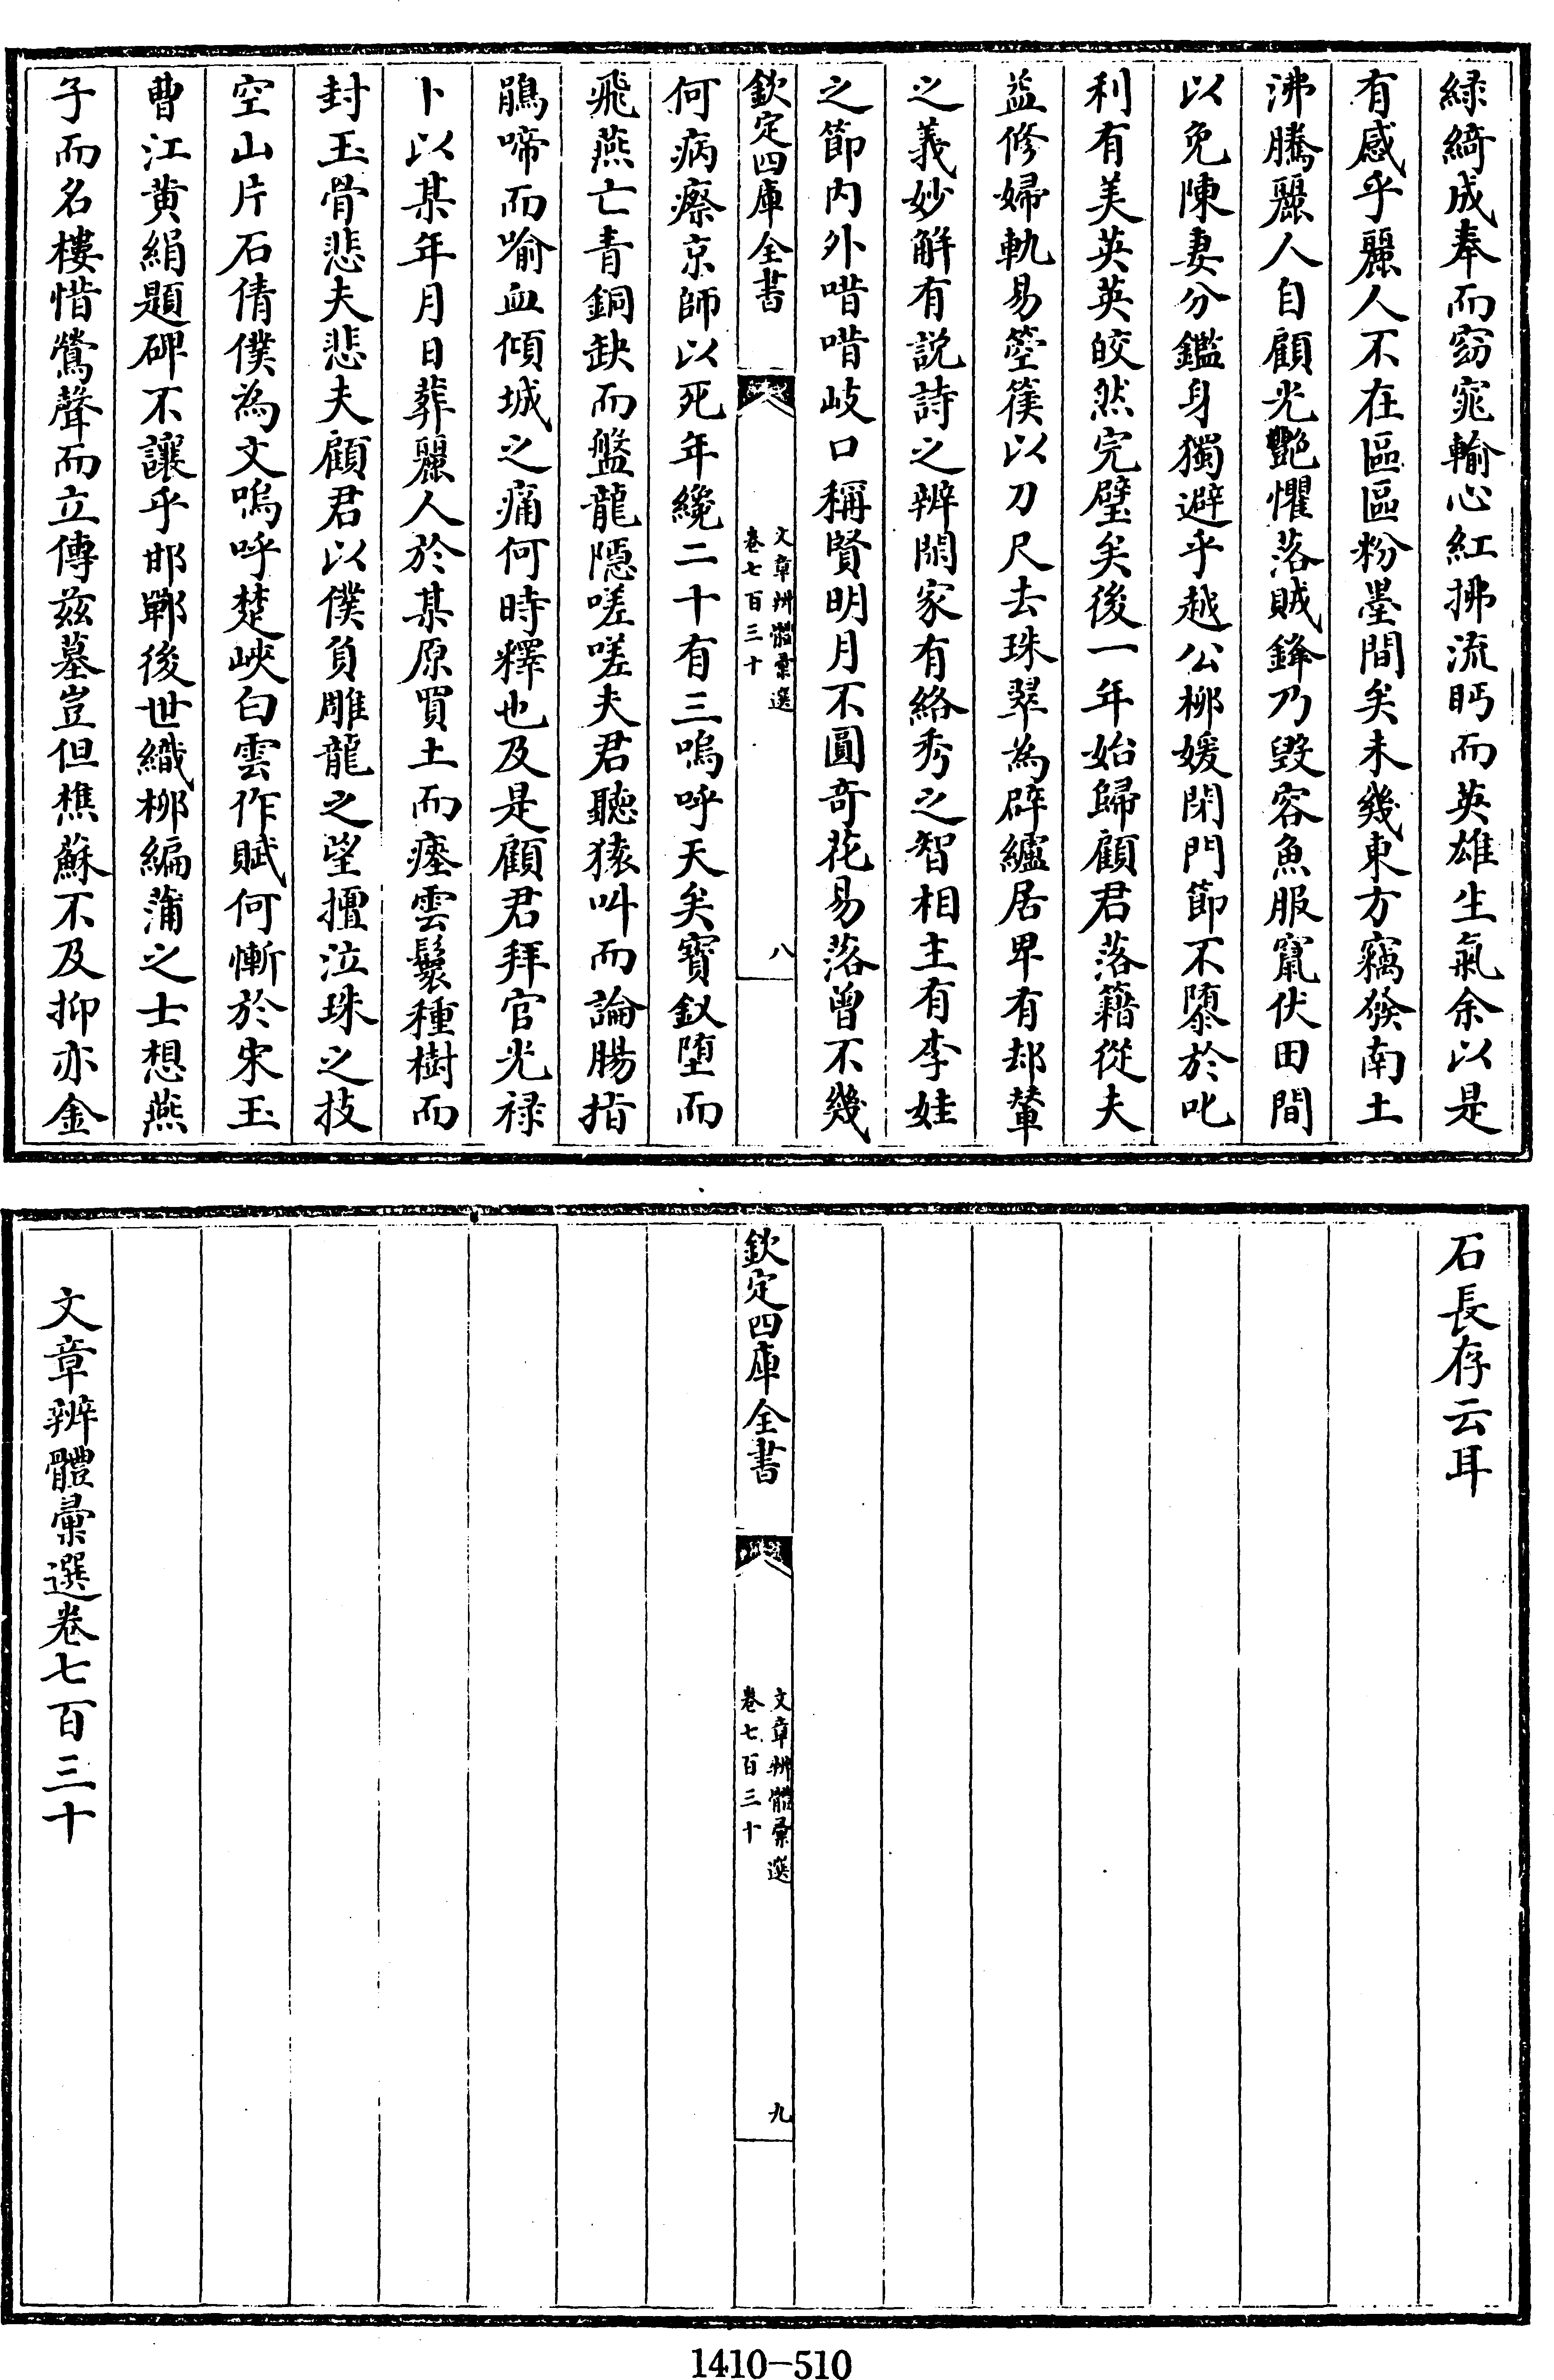 緑綺成奉而窈窕輸心紅拂流眄而英雄生氣余以是
有感乎麗人不在區區粉墨間矣未幾東方竊發南土
沸騰麗人自顧光艷懼落賊鋒乃毀容魚服竄伏田間
以免陳妻分鑑身獨避乎越公柳媛閉門節不隳於叱
利有美英英皎然完璧矣後一年始歸顧君落籍從夫
益修婦軌易箜篌以刀尺去珠翠為辟纑居卑有郄輦
之義妙解有説詩之辨閑家有絡秀之智相主有李娃
之節内外喈喈歧口稱賢明月不圓奇花易落曾不幾
欽定四庫全書
文章辨體彙選
卷七百三十
八
何病瘵京師以死年纔二十有三嗚呼天矣寶釵堕而
飛燕亡青銅缺而盤龍隱嗟嗟夫君聽猿叫而論腸指
鵑啼而喻血傾城之痛何時釋也及是顧君拜官光禄
卜以某年月日葬麗人於某原買土而瘞雲鬟種樹而
封玉骨悲夫悲夫顧君以僕負雕龍之望擅泣珠之技
空山片石倩僕為文嗚呼楚峽白雲作賦何慚於宋玉
曹江黄絹題碑不讓乎邯鄲後世織柳編蒲之士想燕
子而名樓惜鶯聲而立傳兹墓豈但樵蘇不及抑亦金
石長存云耳
欽定四庫全書
文章辨體彙選
卷七百三十
九
文章辨體彙選卷七百三十
1410-510